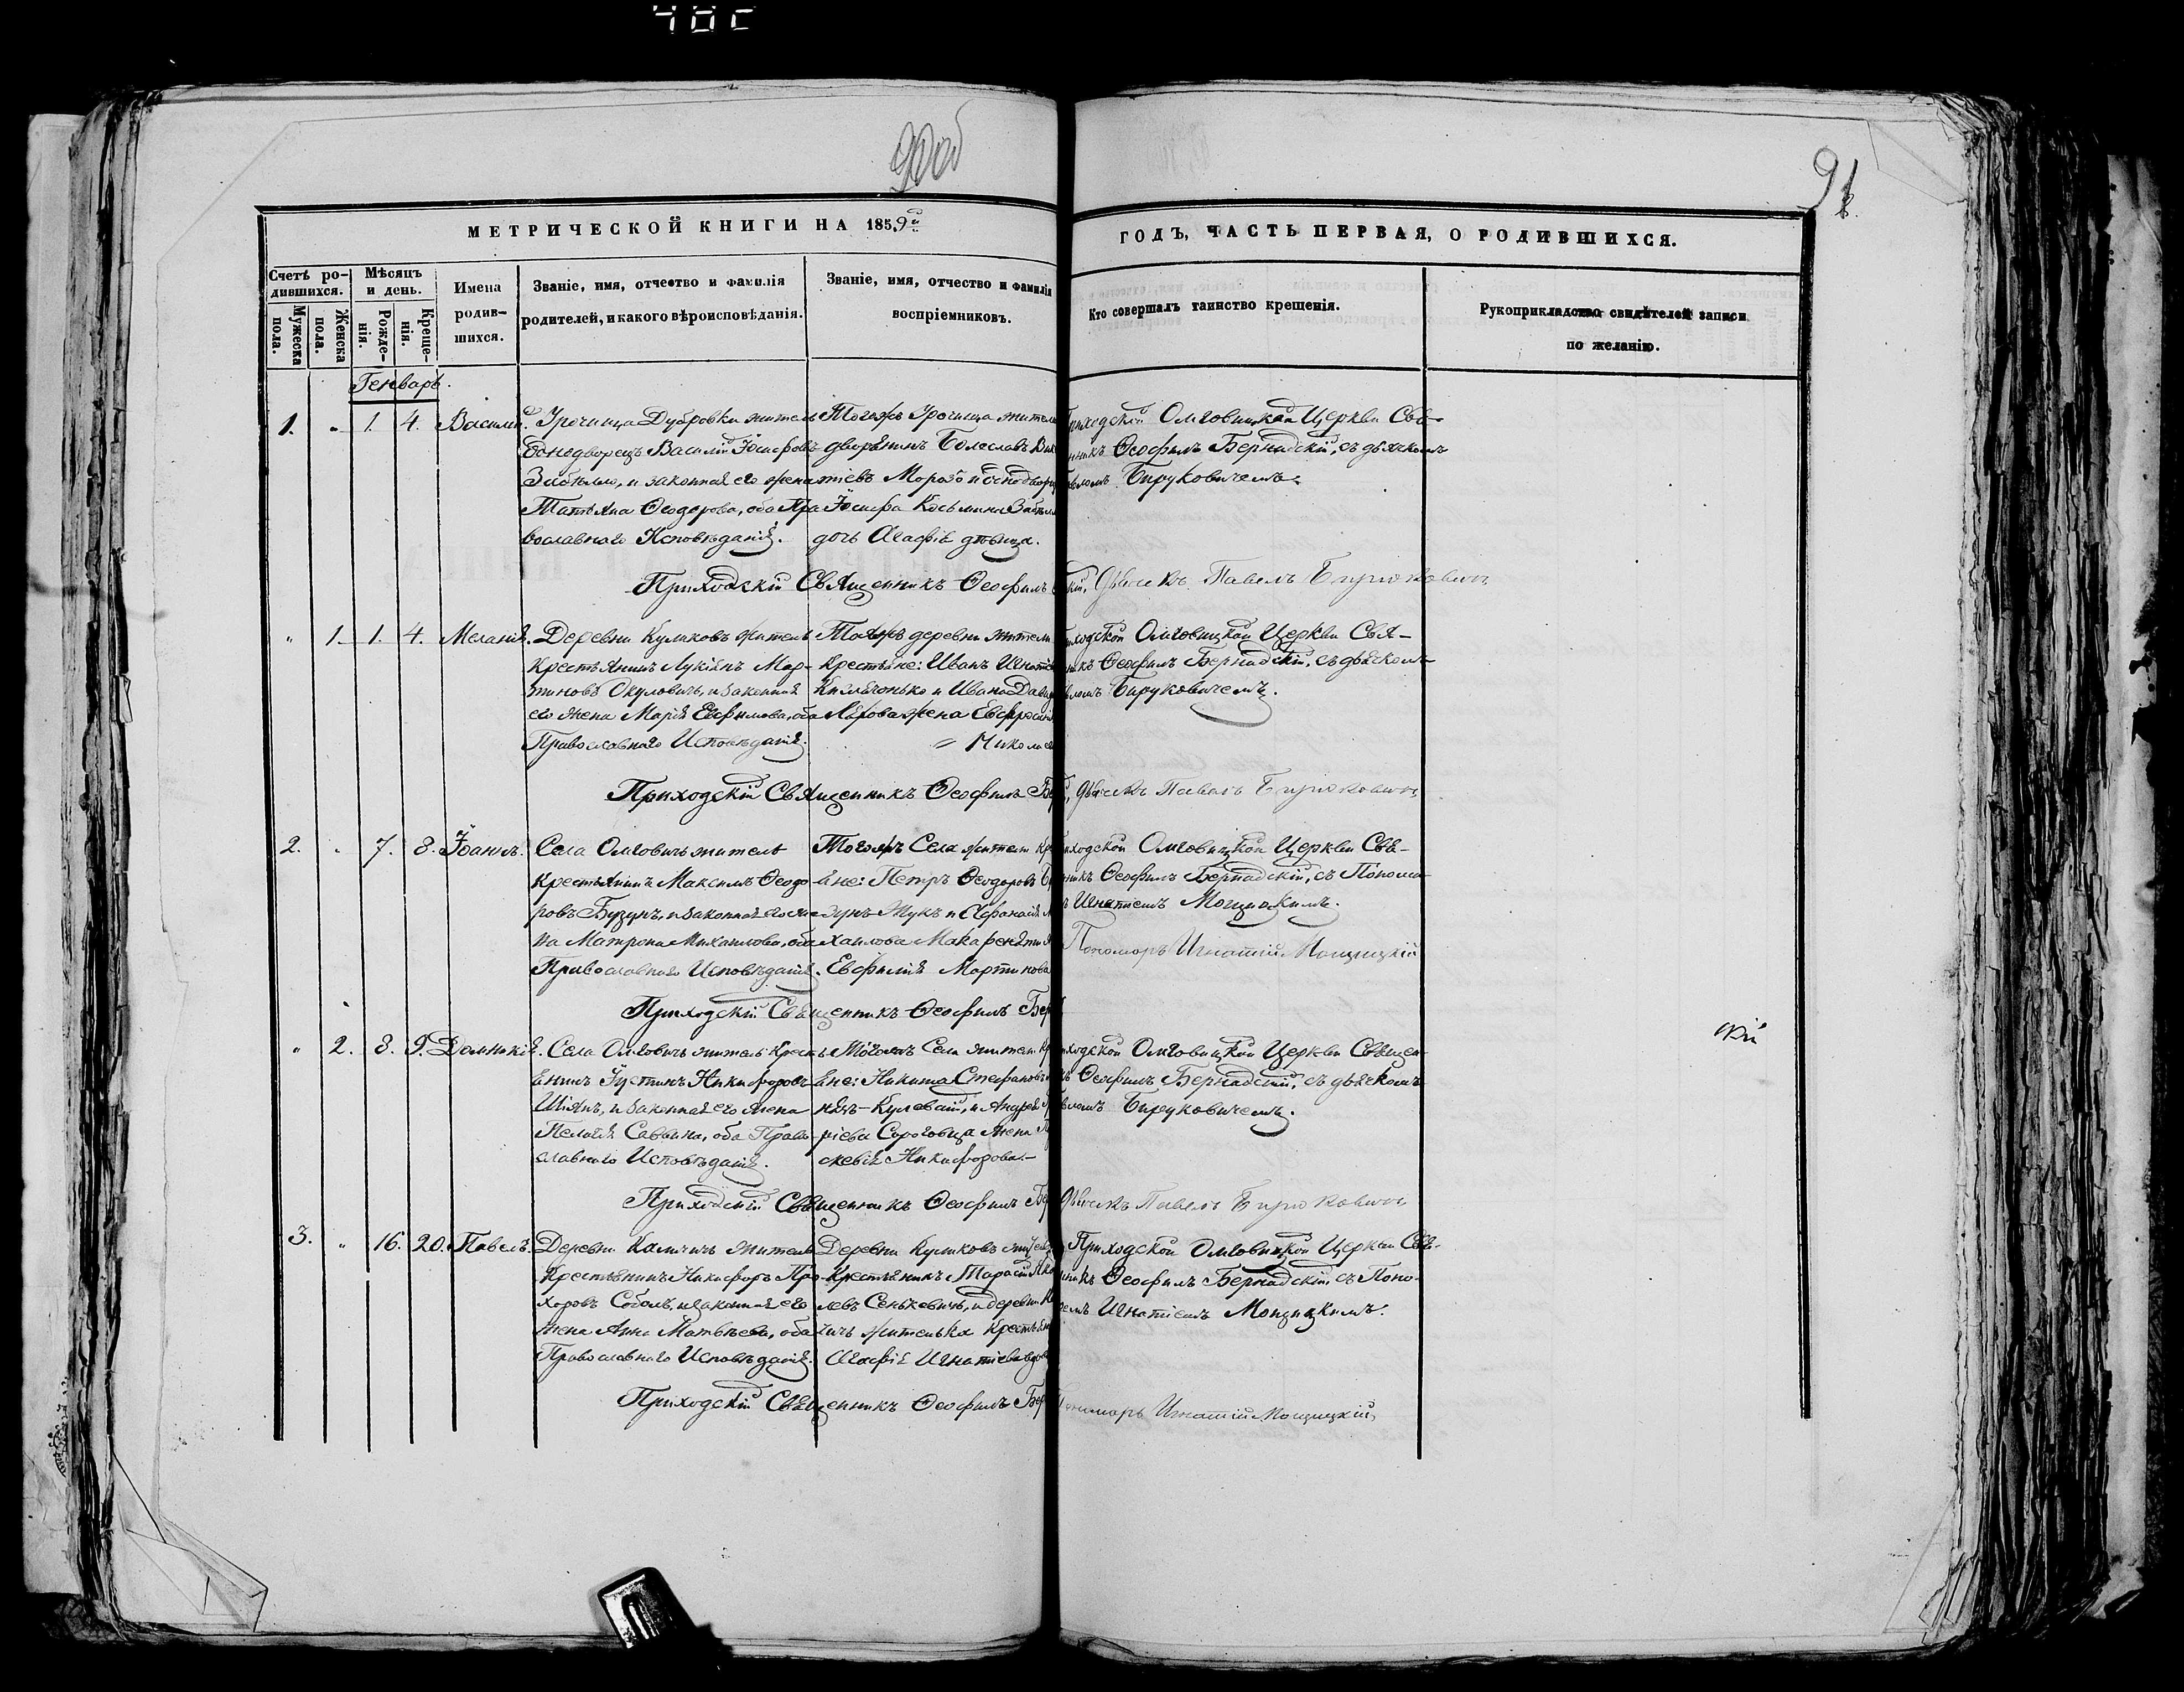 90об
91
МЕТРИЧЕСКОЙ КНИГИ НА 1859й
ГОДЪ, ЧАСТЬ ПЕРВАЯ, О РОДИВШИХСЯ.
Счетъ ро-
дившихся.
Мужеска пола.
Женска пола.
Мѣсяцъ
и день.
Рожде-
нія.
Креще-
нія.
Имена
родив-
шихся.
Званіе, имя, отчество и фамилія
родителей, и какого вѣроисповѣданія.
Званіе, имя, отчество и фамилія
воспріемниковъ.
Кто совершалъ таинство крещенія.
Рукоприкладство свидѣтелей записи
по желанію.
Генварь.
1. " 1. 4. Василій.
Урочища Дубровки житель
Однодворецъ Василій Іосифовъ
Забѣлло, и законная его жена
Татьяна Ѳеодорова, оба Пра
вославнаго Исповѣданія.
Тогожъ Урочища жители
дворянинъ Болеславъ
Морозъ и Однодвор
Іосифа Косьмина
дочь Агафія дѣвица.
Приходскій Омговицкой Церкви Свя-
никъ Ѳеофилъ Бернадскій, съ дьячкомъ
Бируковичемъ.
Приходскій Священникъ Ѳеофилъ
кій, Дьячекъ Павелъ Бирюковичъ
" 1. 1. 4. Меланія.
Деревни Куликовъ житель
Крестьянинъ Лукіянъ Мар-
тиновъ Окуловичъ, и законная
его жена Марія Евфимова, оба
Православнаго Исповѣданія.
Тояжъ деревни жители
Крестьяне: Иванъ Игнатіев
и Ивана Давид
жена Евфросинія
Николае
ходской Омговицкой Церкви Свя-
никъ Ѳеофилъ Бернадскій, съ дьячкомъ
Бируковичемъ.
Приходскій Священникъ Ѳеофилъ Бер
Дьячекъ Павелъ Бирюковичъ
2. " 7. 8. Іоаннъ.
Села Омговичъ житель
Крестьянинъ Максимъ Ѳеодо
ровъ Бузунъ, и законная его же
на Матрона Михаилова, оба
Православнаго Исповѣданія.
Тогожъ Села жители Кр
яне: Петръ Ѳеодоровъ
Жукъ и Афанасія
хаилова Макареня
Евфимія Мартинова
ходской Омговицкой Церкви Свя-
никъ Ѳеофилъ Бернадскій, съ Понома-
Игнатіемъ Мощицкимъ.
Пономарь Игнатій Мощицкій
Приходскій Священникъ Ѳеофилъ Бер
" 2. 8. 9. Домникія.
Села Омговичъ житель Кресть
янинъ Іустинъ Никифоровъ
Шіянъ, и законная его жена
Пелагія Саввина, оба Право-
славнаго Исповѣданія.
Тогожъ Села жители Кр
яне: Никита Стефановъ
и Андрея
ріева Сороговца жена
скевія Никифорова.
ходской Омговицкой Церкви Священ-
Ѳеофилъ Бернадскій, съ дьячкомъ
Бируковичемъ.
кій
Приходскій Священникъ Ѳеофилъ Бер
Дьячекъ Павелъ Бирюковичъ
3. " 16. 20. Павелъ.
Деревни Калчичъ житель
Крестьянинъ Никифоръ Про-
хоровъ Соболь, и законная его
жена Анна Матвѣева, оба
Православнаго Исповѣданія.
Деревни Куликовъ житель
Крестьянинъ Тарасій Яко
левъ Сенькевичъ, и деревни К
чичъ жителька Крестьян
Агафія Игнатіева вдова
Приходской Омговицкой Церкви Свя-
никъ Ѳеофилъ Бернадскій съ Поно-
Игнатіемъ Мощицкимъ.
Приходскій Священникъ Ѳеофилъ Бер
Пономарь Игнатій Мощицкій